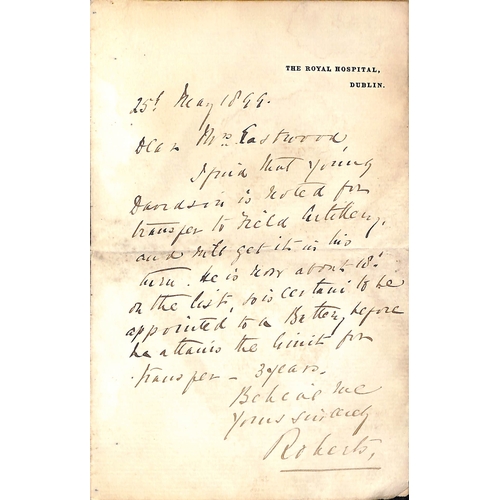 THE ROYAL HOSPITAL,
DUBLIN.
25th May 1899.
Dear Mrs Eastwood,
I find that young
Davidson is noted for
transfer to Field Artillery,
and will get it in his
turn. He is now about 18th
on the list, so is certain to be
appointed to a Battery before
he attains the limit for
transfer – 3 years.
Believe me
Yours sincerely
Roberts,